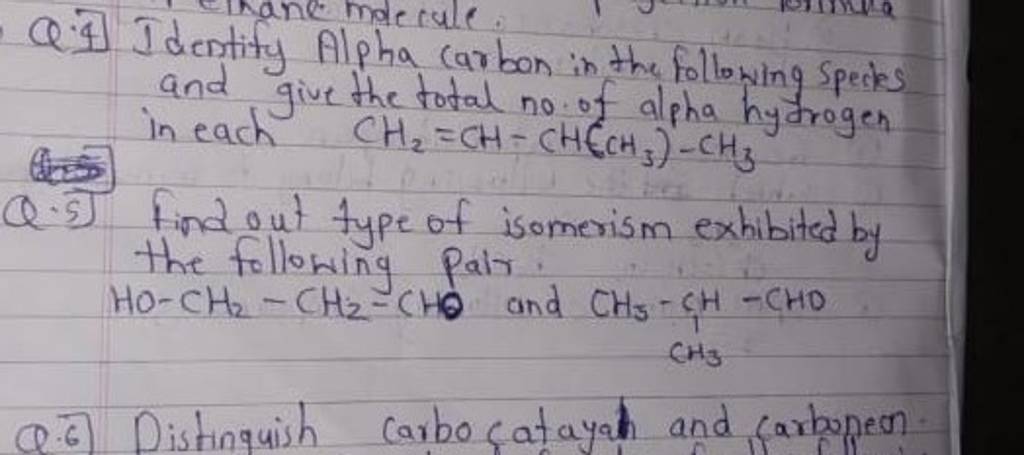 ethane molecule.
Q.4] Identify Alpha carbon in the following species
and give the total no. of alpha hydrogen
in each CH₂=CH-CH(CH₃)-CH₃
Q.5] find out type of isomerism exhibited by
the following pair.
HO-CH₂-CH₂-CHO and CH₃-CH-CHO
CH₃
Q.6] Distinguish carbocatayah and carboneon.